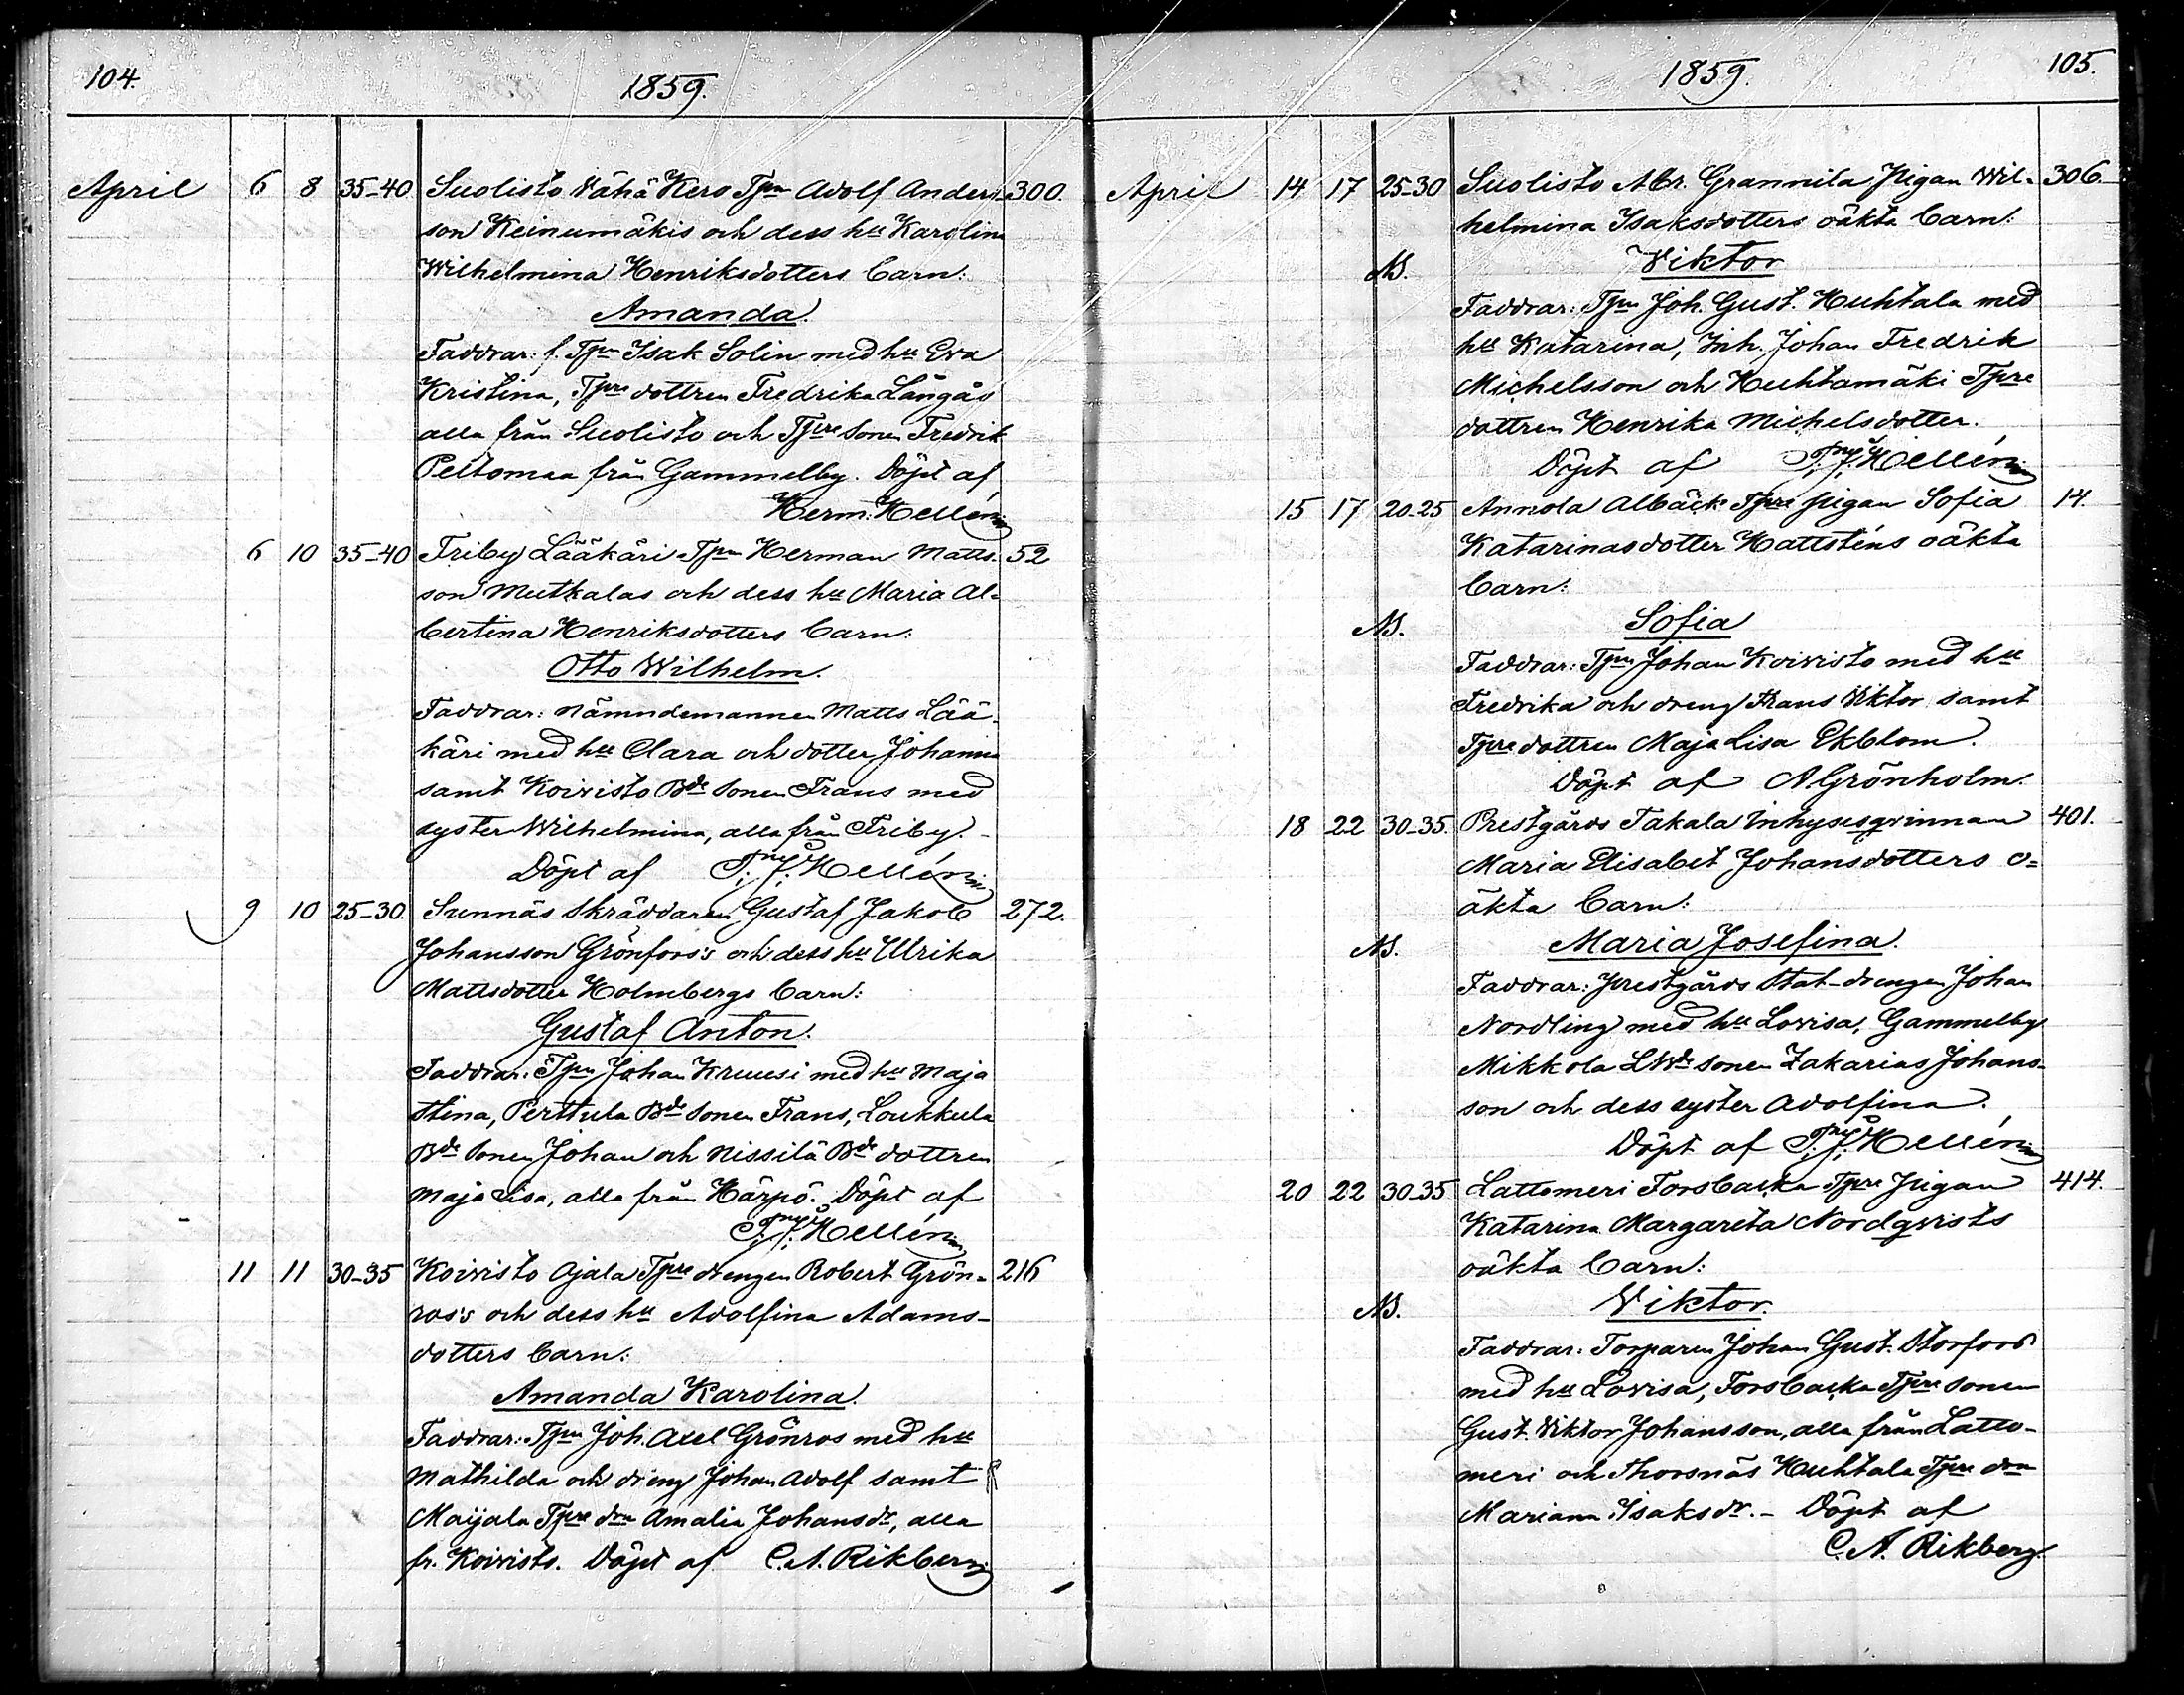 104.
1859.
April 6 8 35-40 Suolisto Vähä Kero Tpn Adolf Anders- 300.
son Keinumäkis och dess hu Karolina
Wilhelmina Henriksdotters barn:
Amanda.
Faddrar: f. Tpn Isak Solin med hu Eva
Kristina, Tpre dottren Fredrika Långås
alla från Suolisto och Tpre sonen Fredrik
Peltomaa från Gammelby. Döpt af
Herm. Hellén
6 10 35-40 Friby Lääkäri Tpn Herman Matts- 52
son Mutkalas och dess hu Maria Al-
bertina Henriksdotters barn:
Otto Wilhelm.
Faddrar: Nämndemannen Matts Lää-
käri med hu Clara och dotter Johanna
samt Koivisto Bde sonen Frans med
syster Wilhelmina, alla från Friby.-
Döpt af Hellén
9 10 25-30. Sunnäs Skräddaren Gustaf Jakob 272.
Johansson Grönfors's och dess hu Ulrika
Mattsdotter Holmbergs barn:
Gustaf Anton.
Faddrar: Tpn Johan Kruusi med hu Maja
Stina, Perttula Bde sonen Frans, Loukkula
Bde sonen Johan och Nissilä Bde dottren
Maja Lisa, alla från Härpö. Döpt af
Hellén
11 11 30-35 Koivisto Ojala Tpre drengen Robert Grön- 216
ros's och dess hu Adolfina Adams-
dotters barn:
Amanda Karolina.
Faddrar: Tpn Joh. Axel Grönros med hu
Mathilda och dreng Johan Adolf samt
Maijala Tpre dra Amalia Johansdr, alla
fr. Koivisto. Döpt af C. A. Rikberg
1859.
105.
April 14 17 25-30 Suolisto Abr. Grannila Pigan Wil- 306
helmina Isaksdotters oäkta barn:
N.
Viktor
Faddrar: Tpn Joh. Gust. Huhtala med
hu Katarina, Inh. Johan Fredrik
Michelsson och Huhtamäki Tpre
dottren Henrika Michelsdotter.
Döpt af Hellén
15 17 20-25 Annola Albäck Tpre pigan Sofia 14.
Katarinasdotter Hatténs oäkta
barn:
N.
Sofia
Faddrar: Tpn Johan Koivisto med hu
Fredrika och dreng Frans Viktor samt
Tpre dottren Maja Lisa Ekblom.
Döpt af A Grönholm.
18 22 30-35. Prestgårds Takala Inhysesqvinnan 401.
Maria Elisabet Johansdotters o=
äkta barn:
N.
Maria Josefina.
Faddrar: prestgårds Stat-drengen Johan
Nordling med hu Lovisa, Gammelby
Mikkola sonen Zakarias Johans-
son och dess syster Adolfina.
Döpt af Hellén
20 22 30-35 Lattomeri Forsbacka Tpre Pigan 414.
Katarina Margareta Nordqvists
oäkta barn:
N.
Viktor.
Faddrar: Torparen Johan Gust. Storfors
med hu Lovisa, Forsbacka Tpre sonen
Gust. Viktor Johansson, alla från Latto-
meri och Thorsnäs Huhtala Tpre dra
Mariana Isaksdr.- Döpt af
C. A. Rikberg.